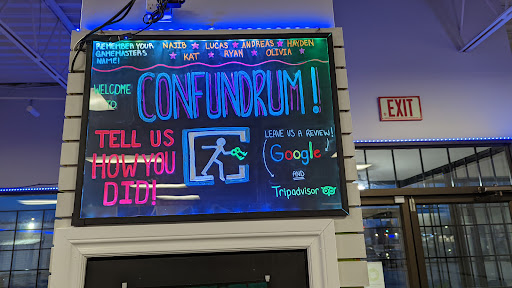 REMEMBER YOUR GAMEMASTERS NAME!
NAJIB ★ LUCAS ★ ANDREAS ★ HAYDEN
★ KAT ★ RYAN ★ OLIVIA ★
WELCOME TO
CONFUNDRUM!
TELL US
HOW YOU
DID!
LEAVE US A REVIEW!
Google
AND
Tripadvisor
EXIT